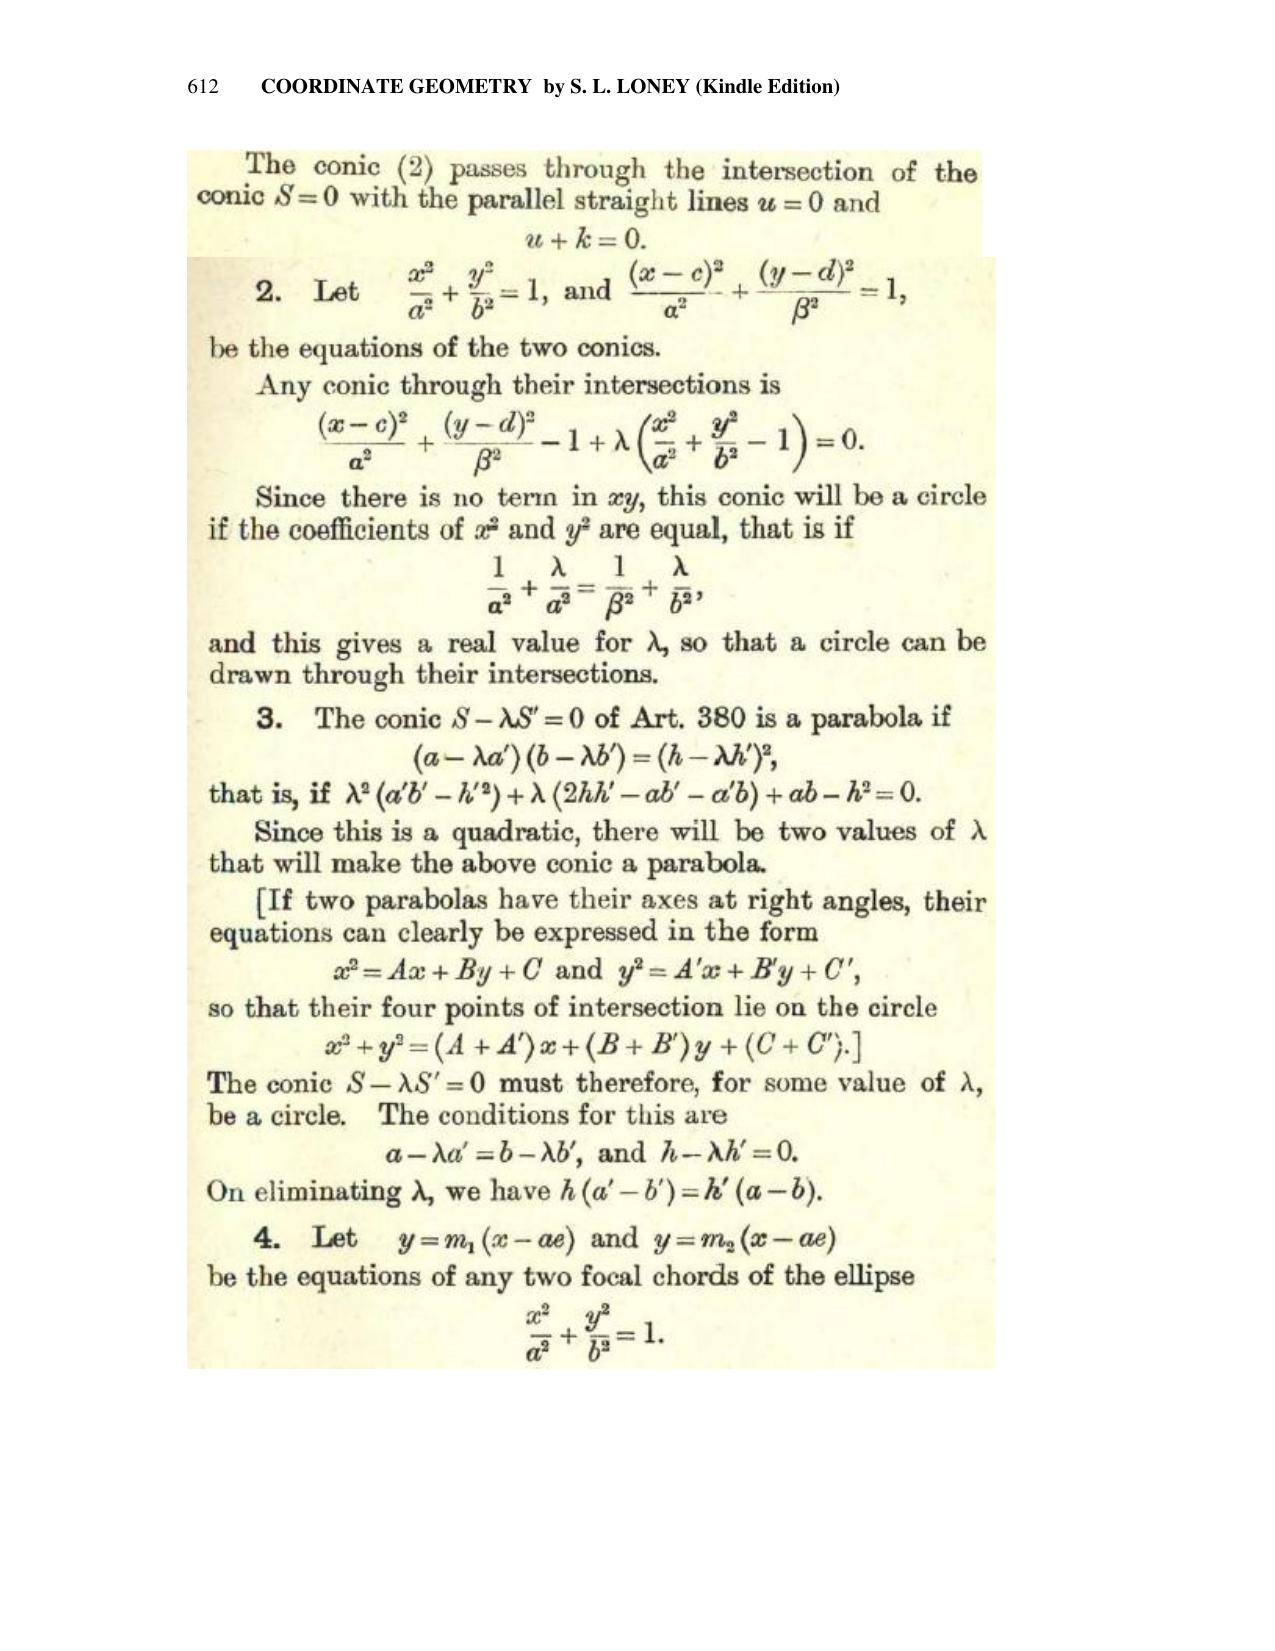 612 COORDINATE GEOMETRY by S. L. LONEY (Kindle Edition)
The conic (2) passes through the intersection of the
conic S = 0 with the parallel straight lines u = 0 and
u + k = 0.
2. Let x²/a² + y²/b² = 1, and (x − c)²/α² + (y − d)²/β² = 1,
be the equations of the two conics.
Any conic through their intersections is
(x − c)²/α² + (y − d)²/β² − 1 + λ (x²/a² + y²/b² − 1) = 0.
Since there is no term in xy, this conic will be a circle
if the coefficients of x² and y² are equal, that is if
1/α² + λ/a² = 1/β² + λ/b²,
and this gives a real value for λ, so that a circle can be
drawn through their intersections.
3. The conic S − λS′ = 0 of Art. 380 is a parabola if
(a − λa′) (b − λb′) = (h − λh′)²,
that is, if λ² (a′b′ − h′²) + λ (2hh′ − ab′ − a′b) + ab − h² = 0.
Since this is a quadratic, there will be two values of λ
that will make the above conic a parabola.
[If two parabolas have their axes at right angles, their
equations can clearly be expressed in the form
x² = Ax + By + C and y² = A′x + B′y + C′,
so that their four points of intersection lie on the circle
x² + y² = (A + A′) x + (B + B′) y + (C + C′).]
The conic S − λS′ = 0 must therefore, for some value of λ,
be a circle. The conditions for this are
a − λa′ = b − λb′, and h − λh′ = 0.
On eliminating λ, we have h (a′ − b′) = h′ (a − b).
4. Let y = m₁ (x − ae) and y = m₂ (x − ae)
be the equations of any two focal chords of the ellipse
x²/a² + y²/b² = 1.